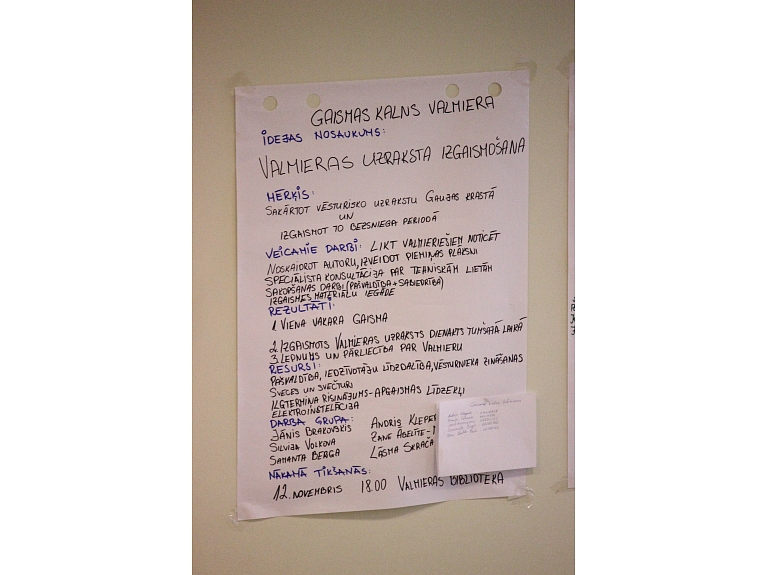 GAISMAS KALNS VALMIERA
IDEJAS NOSAUKUMS:
VALMIERAS UZRAKSTA IZGAISMOŠANA
MĒRĶIS:
SAKĀRTOT VĒSTURISKO UZRAKSTU GAUJAS KRASTĀ
UN
IZGAISMOT TO BEZSNIEGA PERIODĀ
VEICAMIE DARBI: LIKT VALMIERIEŠIEM NOTICĒT
NOSKAIDROT AUTORU, IZVEIDOT PIEMIŅAS PLĀKSNI
SPECIĀLISTA KONSULTĀCIJA PAR TEHNISKĀM LIETĀM
SAKOPŠANAS DARBI (PAŠVALDĪBA + SABIEDRĪBA)
IZGAISMES MATERIĀLU IEGĀDE
REZULTĀTI:
1. VIENA VAKARA GAISMA
2. IZGAISMOTS VALMIERAS UZRAKSTS DIENAKTS TUMŠAJĀ LAIKĀ
3. LEPNUMS UN PĀRLIECĪBA PAR VALMIERU
RESURSI:
PAŠVALDĪBA, IEDZĪVOTĀJU LĪDZDALĪBA, VĒSTURNIEKA ZINĀŠANAS
SVECES UN SVEČTURI
ILGTERMIŅA RISINĀJUMS - APGAISMES LĪDZEKĻI
ELEKTROINSTALĀCIJA
DARBA GRUPA:
JĀNIS BRAKOVSKIS ANDRIS KLEPER
SILVIJA VOLKOVA ZANE ABELĪTE -
SAMANTA BERGA LĀSMA SKRAČA
NĀKAMĀ TIKŠANĀS:
12. NOVEMBRIS 18.00 VALMIERAS BIBLIOTĒKA